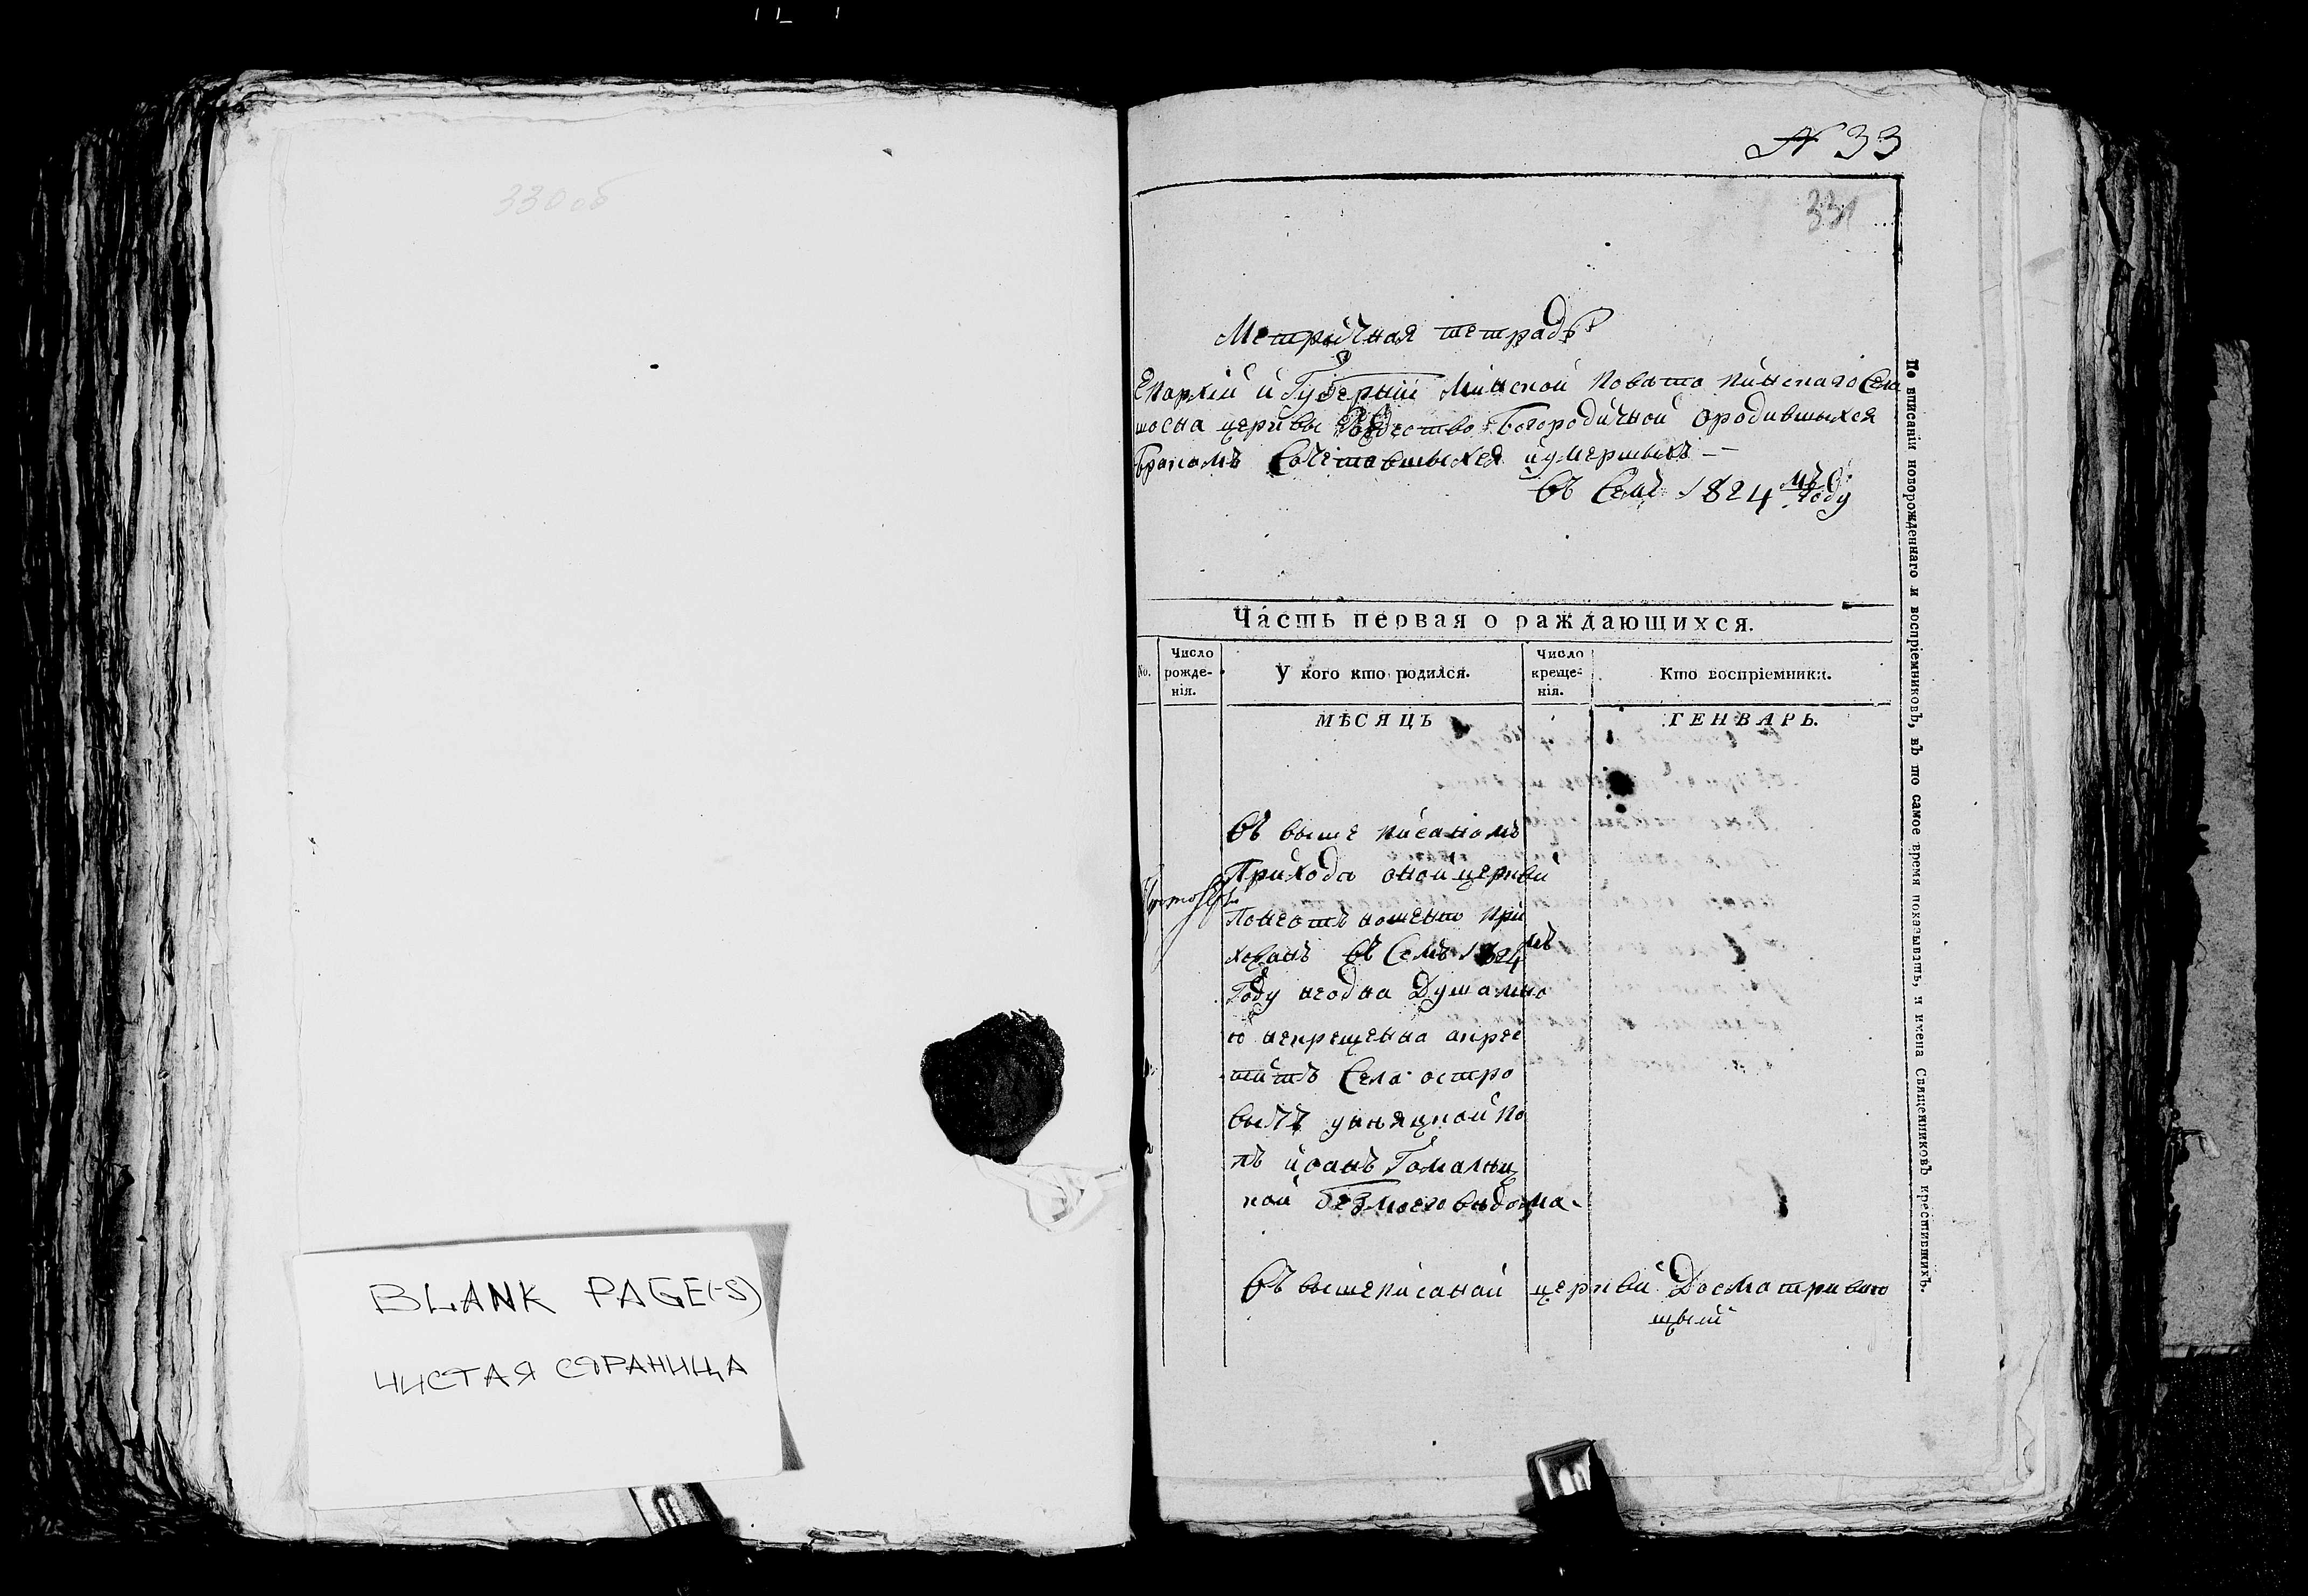 330 об
BLANK PAGE(-S)
ЧИСТАЯ СТРАНИЦА
N 33
331
Метричная тетрадь
Епархіи и Губерніи Минской Повета Пинскаго Села
шосна церквы Рождество Богородичной ородившыхся
Бракомъ Сочетавшыхся иумершыхъ —
Въ Семъ 1824 мъ Году
Часть первая о раждающихся.
No.
Число рожде- нія.
У кого кто родился.
Число креще- нія.
Кто воспріемники.
МѢСЯЦЪ
ГЕНВАРЬ.
Въ выше писаномъ
Прихода оной церкви
ношенто При
хожанъ Въ Семъ 1824 мъ
Году неодна Душа мно
ю некрещенна акрес
титъ Села остро
вычъ уняцкой По
пъ иоанъ
кой безмоего ведома.
Въ вышеписаной церкви Досмотриваю
щый
По вписаніи новорожденнаго и воспріемниковъ, въ то самое время показывать, и имена Священниковъ крестившихъ.